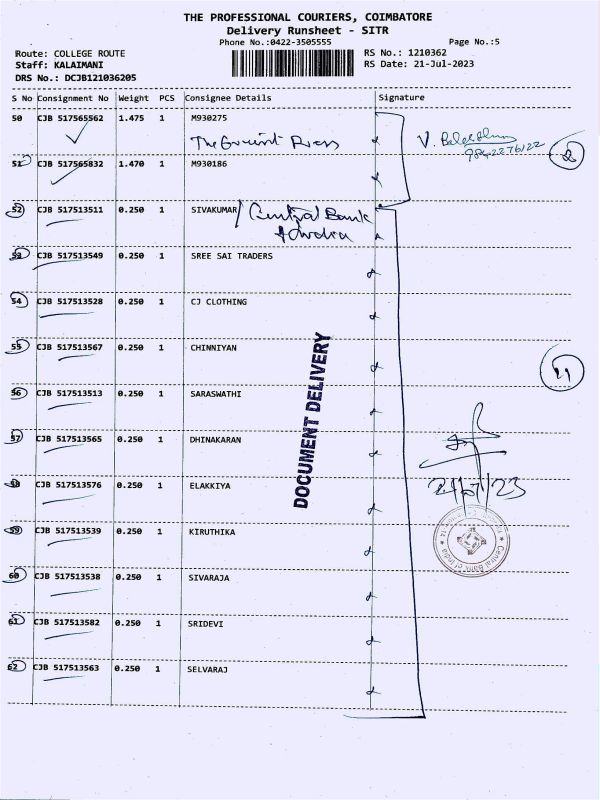 THE PROFESSIONAL COURIERS, COIMBATORE
Delivery Runsheet - SITR
Phone No.:0422-3505555
Page No.:5
Route: COLLEGE ROUTE
RS No.: 1210362
Staff: KALAIMANI
RS Date: 21-Jul-2023
DRS No.: DCJB121036205
S No Consignment No Weight PCS Consignee Details Signature
50 CJB 517565562 1.475 1 M930275
V.
9842276122
51 CJB 517565832 1.470 1 M930186
52 CJB 517513511 0.250 1 SIVAKUMAR / Central Bank
of India
53 CJB 517513549 0.250 1 SREE SAI TRADERS
54 CJB 517513528 0.250 1 CJ CLOTHING
55 CJB 517513567 0.250 1 CHINNIYAN
56 CJB 517513513 0.250 1 SARASWATHI
57 CJB 517513565 0.250 1 DHINAKARAN
58 CJB 517513576 0.250 1 ELAKKIYA
59 CJB 517513539 0.250 1 KIRUTHIKA
60 CJB 517513538 0.250 1 SIVARAJA
61 CJB 517513582 0.250 1 SRIDEVI
62 CJB 517513563 0.250 1 SELVARAJ
DOCUMENT DELIVERY
21/07/23
Central Bank of India